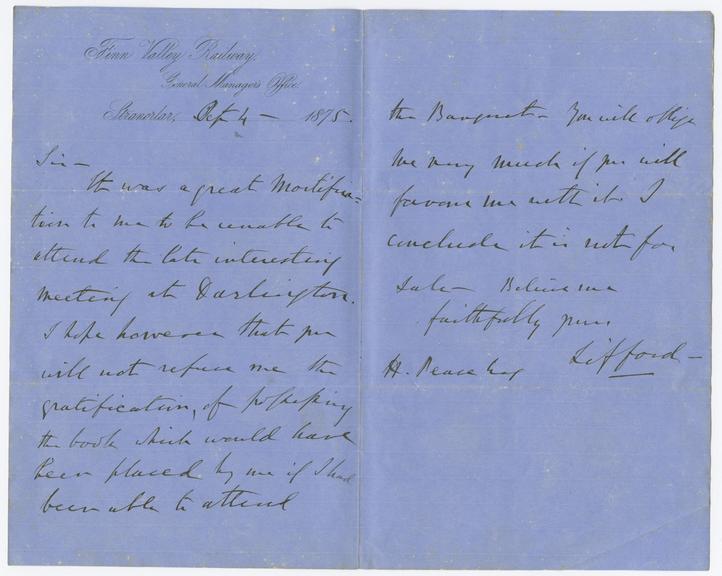 Finn Valley Railway,
General Managers Office.
Stranorlar, Oct 4 - 1875.
Sir -
It was a great Mortifica=
tion to me to be unable to
attend the late interesting
meeting at Darlington.
I hope however that you
will not refuse me the
gratification, of possessing
the book which would have
been placed by me if I had
been able to attend
the Banquet - You will oblige
me very much if you will
favour me with it - I
conclude it is not for
Sale - Believe me
faithfully yours
Lifford -
H. Pease Esq